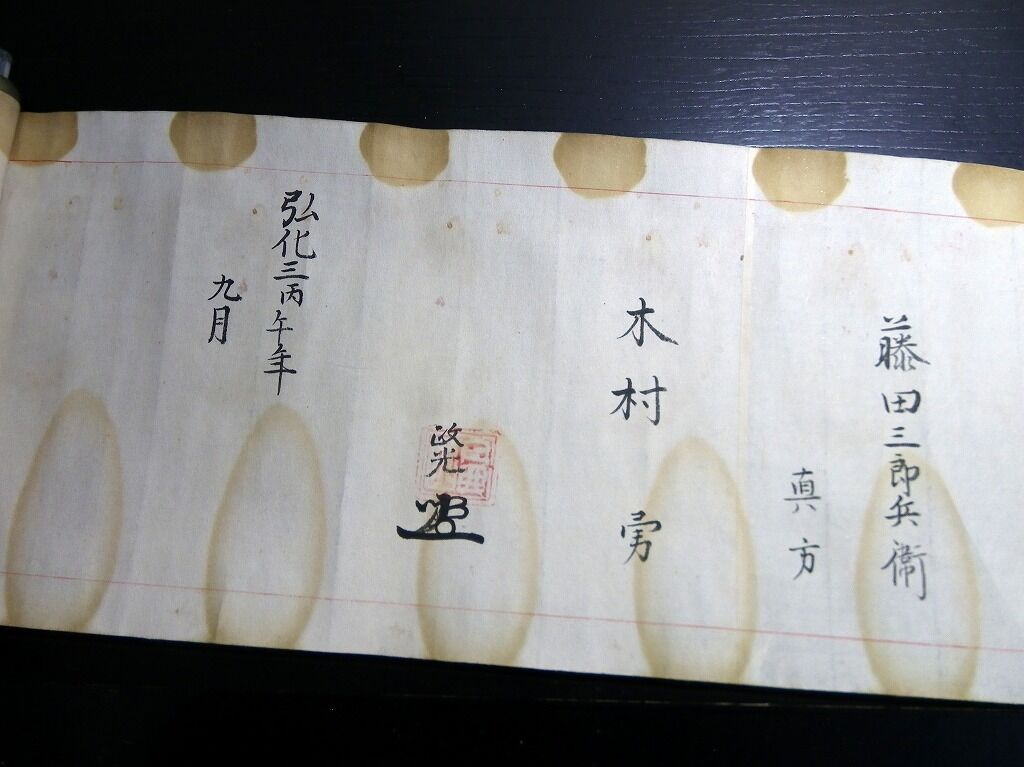 藤田三郎兵衛
真方
木村 勇
政光
弘化三丙午年
九月